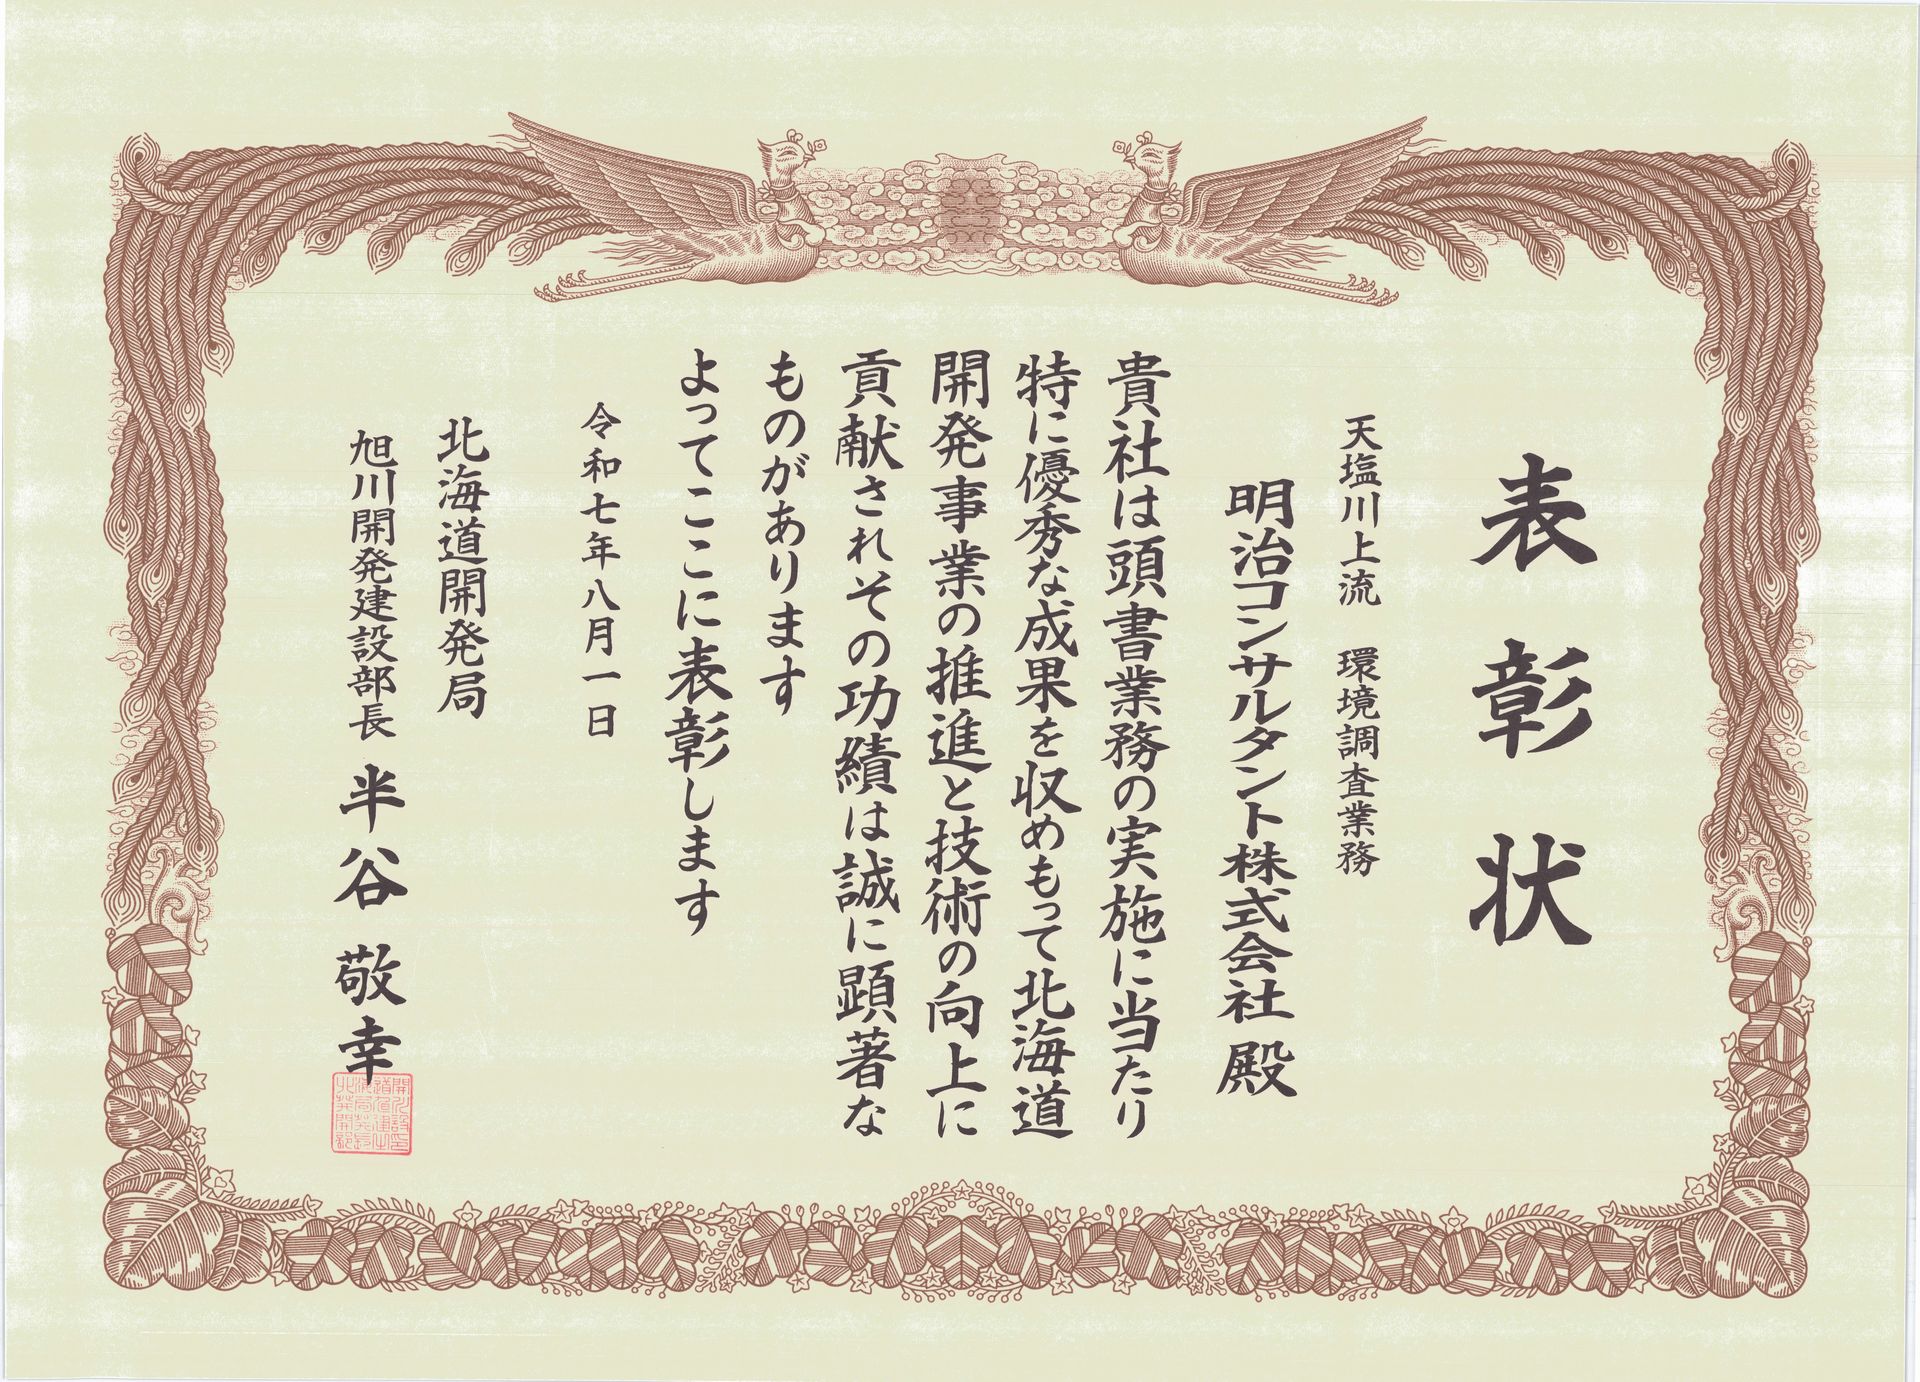 表彰状
天塩川上流　環境調査業務
明治コンサルタント株式会社 殿
貴社は頭書業務の実施に当たり
特に優秀な成果を収めもって北海道
開発事業の推進と技術の向上に
貢献されその功績は誠に顕著な
ものがあります
よってここに表彰します
令和七年八月一日
北海道開発局
旭川開発建設部長 半谷敬幸